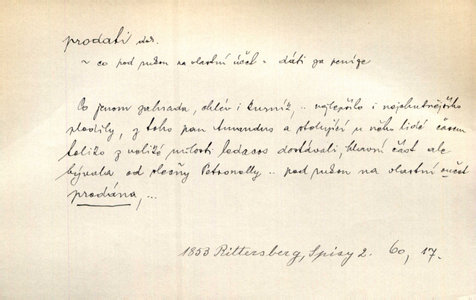 prodati dok.
~ co pod rukou na vlastní účet - dáti za peníze
Co jenom zahrada, chlév i kurník, .. nejlepšího i nejchutnějšího
plodily, z toho pan Amanders a sloužící u něho lidé časem
toliko z veliké milosti ledacos dostávali, hlavní část ale
bývala od slečny Petronelly .. pod rukou na vlastní oučet
prodána, ...
1853 Rittersberg, Spisy 2. 60, 17.